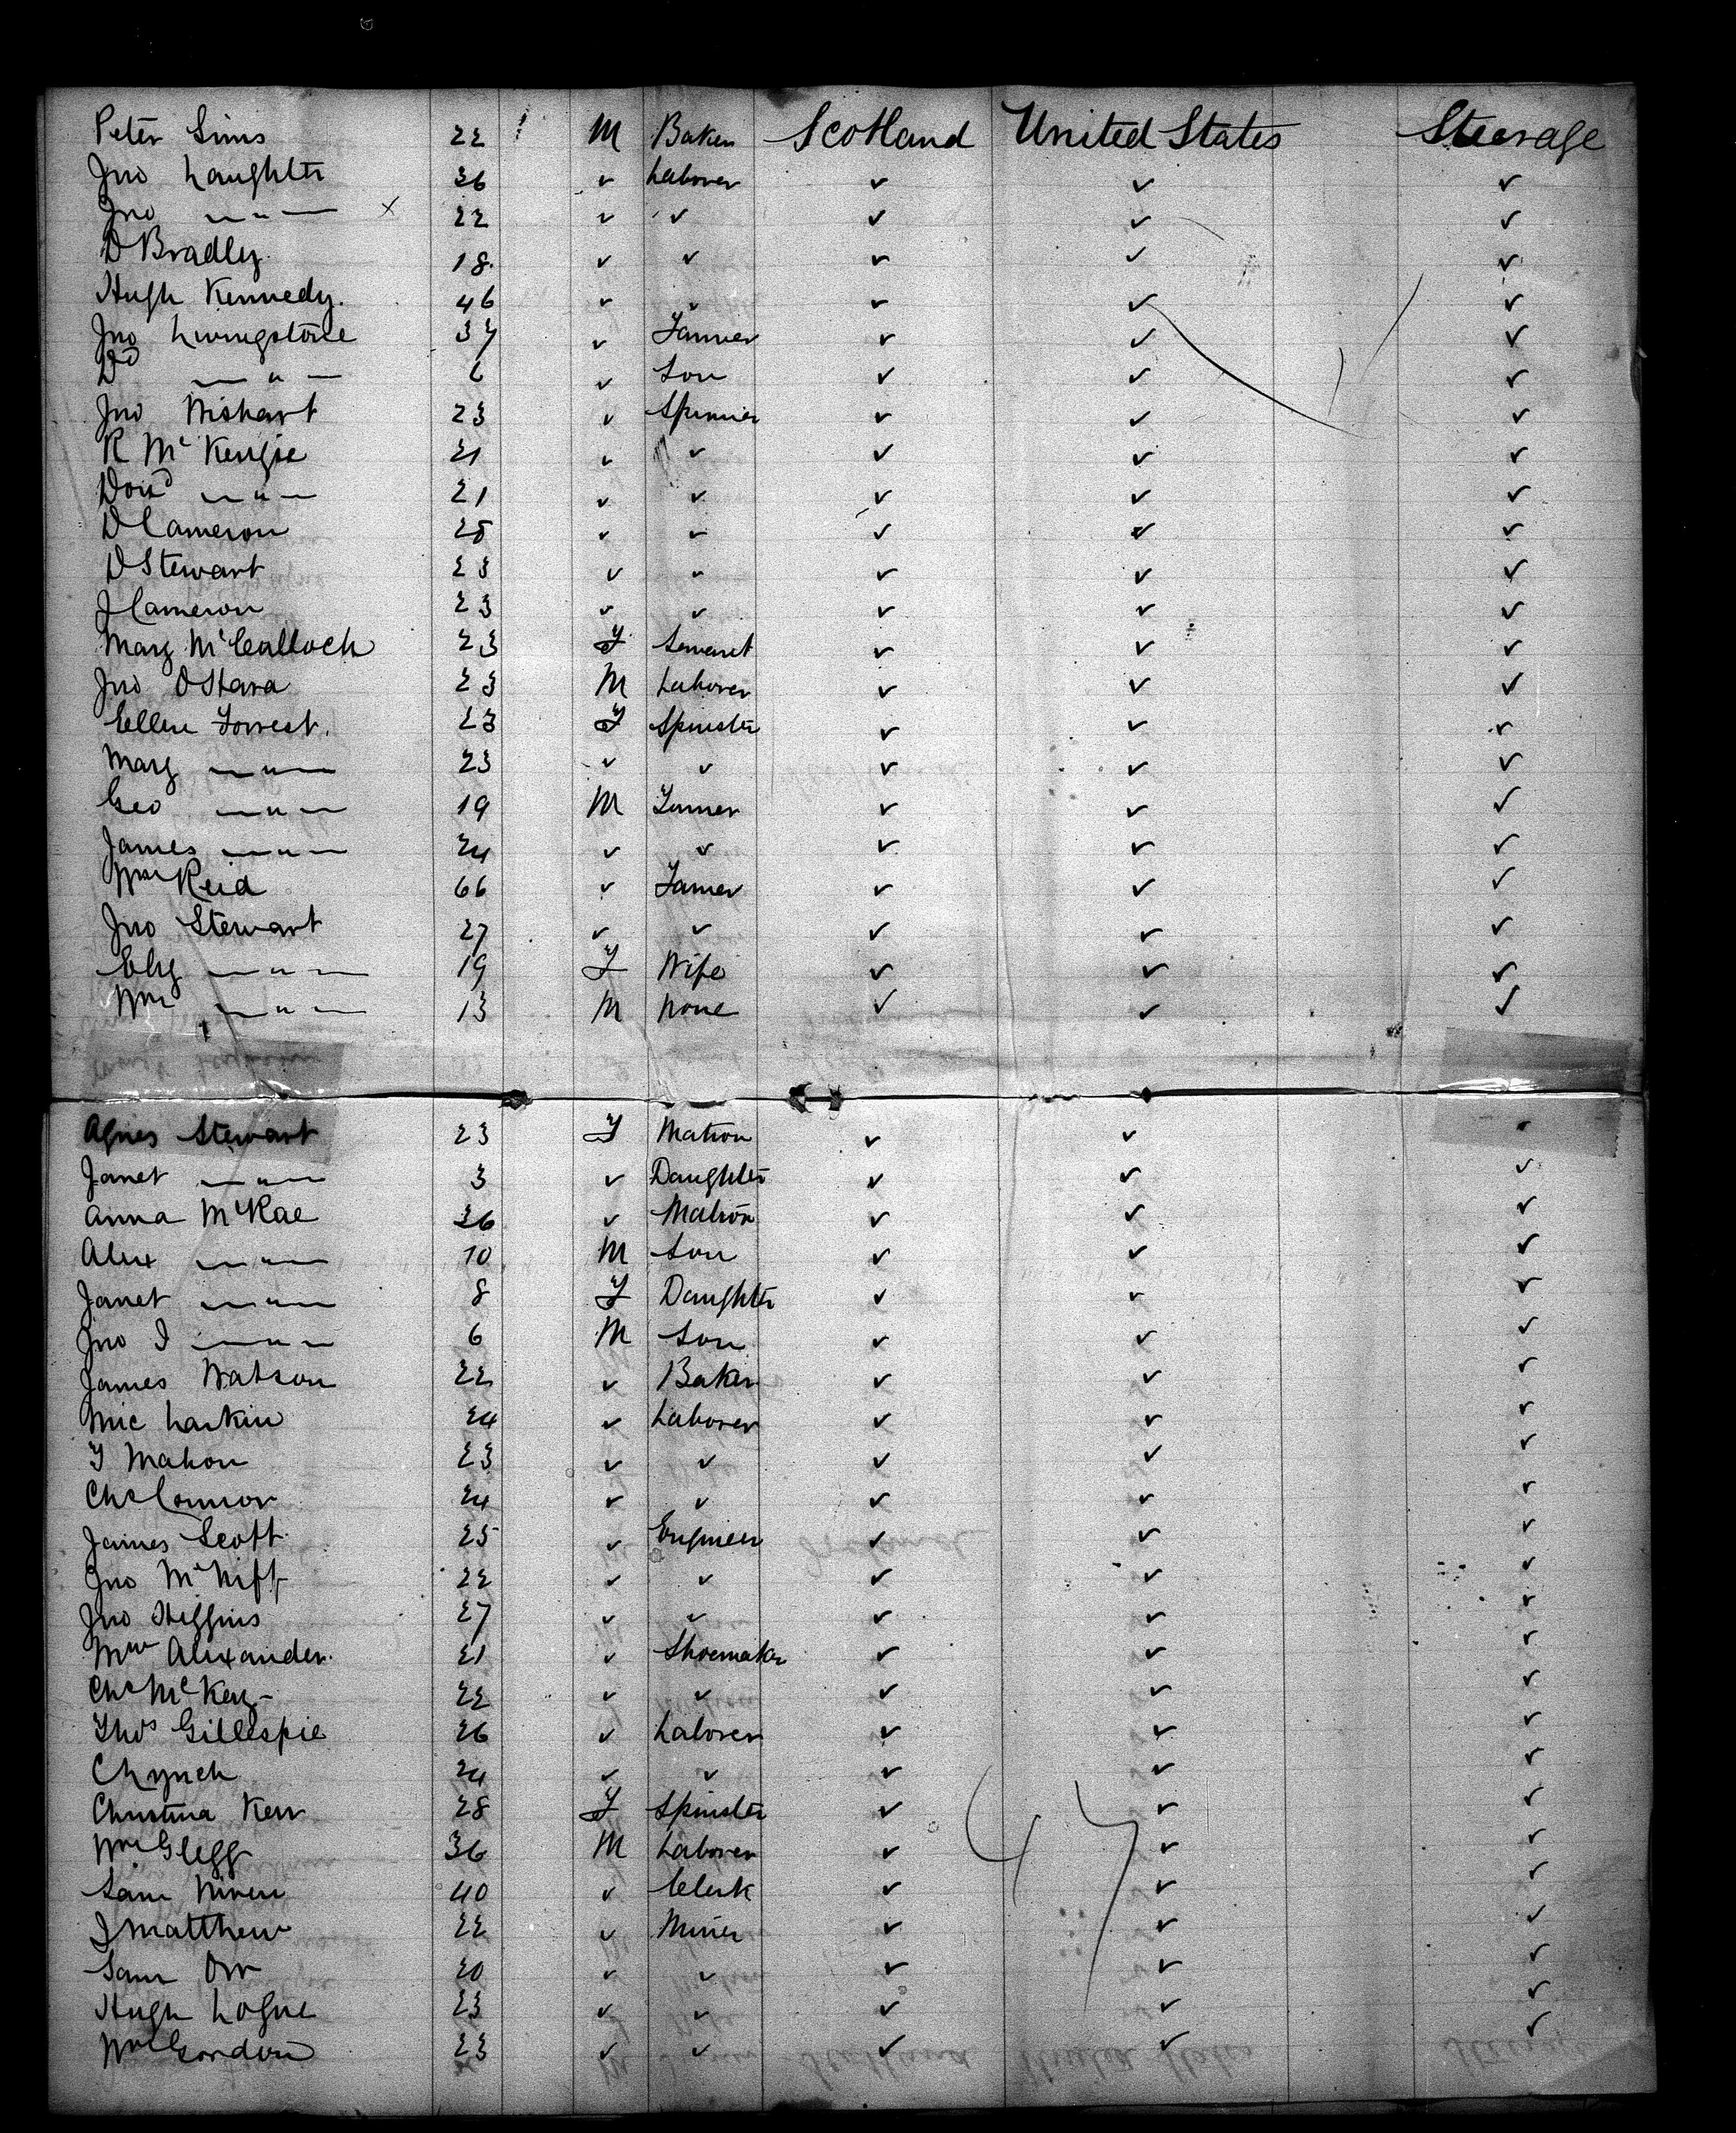 Peter Sims 22 M Baker Scotland United States Steerage
Jno Laughlin 36 ✓ Laborer ✓ ✓ ✓
Jno — " — x 22 ✓ ✓ ✓ ✓ ✓
D Bradley 18 ✓ ✓ ✓ ✓ ✓
Hugh Kennedy 46 ✓ ✓ ✓ ✓ ✓
Jno Livingstone 37 ✓ Farmer ✓ ✓ ✓
Dd — " — 6 ✓ Son ✓ ✓ ✓
Jno Wishart 23 ✓ Spinner ✓ ✓ ✓
R McKenzie 21 ✓ ✓ ✓ ✓ ✓
Dond — " — 21 ✓ ✓ ✓ ✓ ✓
D Cameron 25 ✓ ✓ ✓ ✓ ✓
D Stewart 23 ✓ ✓ ✓ ✓ ✓
J Cameron 23 ✓ ✓ ✓ ✓ ✓
Mary McCulloch 23 F Servant ✓ ✓ ✓
Jno OHara 23 M Laborer ✓ ✓ ✓
Ellen Forrest 23 F Spinster ✓ ✓ ✓
Mary — " — 23 ✓ ✓ ✓ ✓ ✓
Geo — " — 19 M Farmer ✓ ✓ ✓
James — " — 24 ✓ ✓ ✓ ✓ ✓
Wm Reid 66 ✓ Farmer ✓ ✓ ✓
Jno Stewart 27 ✓ ✓ ✓ ✓ ✓
Eliz — " — 19 F Wife ✓ ✓ ✓
Wm — " — 13 M None ✓ ✓ ✓
Agnes Stewart 23 F Matron ✓ ✓ ✓
Janet — " — 3 ✓ Daughter ✓ ✓ ✓
Anna McRae 36 ✓ Matron ✓ ✓ ✓
Alex — " — 10 M Son ✓ ✓ ✓
Janet — " — 8 F Daughter ✓ ✓ ✓
Jno I — " — 6 M Son ✓ ✓ ✓
James Watson 22 ✓ Baker ✓ ✓ ✓
Mic Larkin 24 ✓ Laborer ✓ ✓ ✓
T Mahon 23 ✓ ✓ ✓ ✓ ✓
Chs Connor 24 ✓ ✓ ✓ ✓ ✓
James Scott 25 ✓ Engineer ✓ ✓ ✓
Jno McNiff 22 ✓ ✓ ✓ ✓ ✓
Jno Higgins 27 ✓ ✓ ✓ ✓ ✓
Mw Alexander 21 ✓ Shoemaker ✓ ✓ ✓
Chs McKey 22 ✓ ✓ ✓ ✓ ✓
Thos Gillespie 26 ✓ Laborer ✓ ✓ ✓
C Lynch 24 ✓ ✓ ✓ ✓ ✓
Christina Kerr 28 F Spinster ✓ ✓ ✓
Wm Glegg 36 M Laborer ✓ ✓ ✓
Sam Niven 40 ✓ Clerk ✓ ✓ ✓
J Matthew 22 ✓ Miner ✓ ✓ ✓
Sam Orr 20 ✓ ✓ ✓ ✓ ✓
Hugh Logue 23 ✓ ✓ ✓ ✓ ✓
Wm Gordon 23 ✓ ✓ ✓ ✓ ✓
47